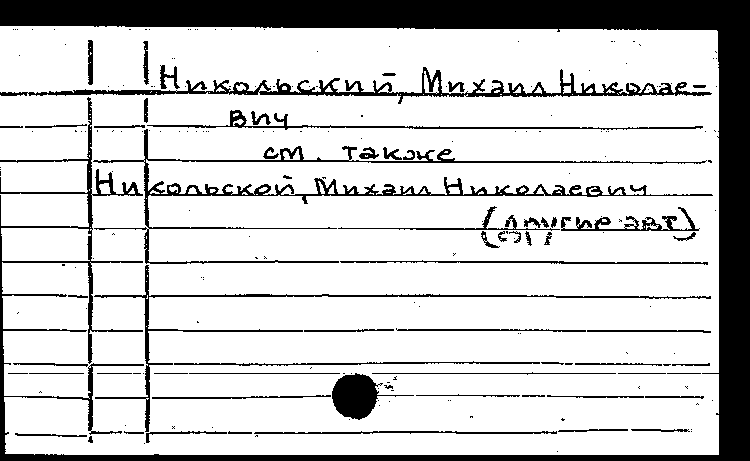 Никольский, Михаил Николае=
вич
см. также
Никольской, Михаил Николаевич
(другие авт)